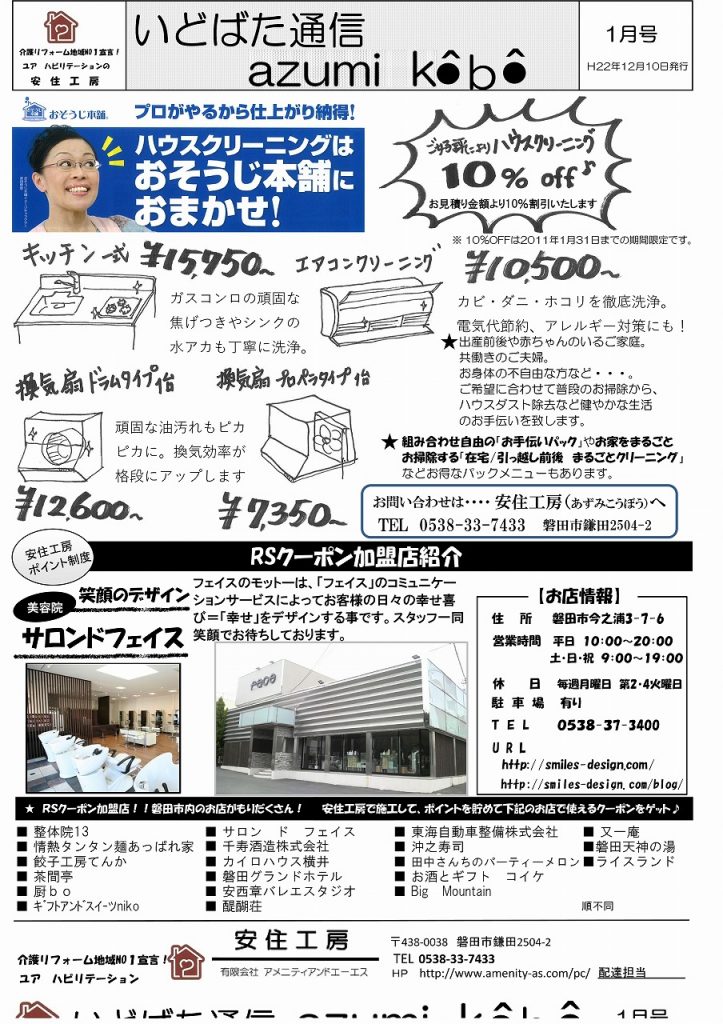 介護リフォーム地域NO1宣言!
ユア ハビリテーションの
安住工房
いどばた通信
azumi kôbô
1月号
H22年12月10日発行
おそうじ本舗
プロがやるから仕上がり納得!
ハウスクリーニングは
おそうじ本舗に
おまかせ!
ご好評によりハウスクリーニング
10% off♪
お見積り金額より10%割引いたします
※ 10%OFFは2011年1月31日までの期間限定です。
キッチン一式 ¥15,750~
ガスコンロの頑固な
焦げつきやシンクの
水アカも丁寧に洗浄。
エアコンクリーニング ¥10,500~
カビ・ダニ・ホコリを徹底洗浄。
電気代節約、アレルギー対策にも!
★出産前後や赤ちゃんのいるご家庭。
共働きのご夫婦。
お身体の不自由な方など・・・。
ご希望に合わせて普段のお掃除から、
ハウスダスト除去など健やかな生活
のお手伝いを致します。
換気扇ドラムタイプ1台
頑固な油汚れもピカ
ピカに。換気効率が
格段にアップします
¥12,600~
換気扇プロペラタイプ1台
¥7,350~
★ 組み合わせ自由の「お手伝いパック」やお家をまるごと
お掃除する「在宅/引っ越し前後 まるごとクリーニング」
などお得なパックメニューもあります。
お問い合わせは・・・・ 安住工房(あずみこうぼう)へ
TEL 0538-33-7433 磐田市鎌田2504-2
安住工房
ポイント制度
RSクーポン加盟店紹介
美容院
笑顔のデザイン
サロンドフェイス
フェイスのモットーは、「フェイス」のコミュニケー
ションサービスによってお客様の日々の幸せ喜
び=「幸せ」をデザインする事です。スタッフ一同
笑顔でお待ちしております。
【お店情報】
住所 磐田市今之浦3-7-6
営業時間 平日 10:00~20:00
土・日・祝 9:00~19:00
休日 毎週月曜日 第2・4火曜日
駐車場 有り
TEL 0538-37-3400
URL
http://smiles-design.com/
http://smiles-design.com/blog/
★ RSクーポン加盟店!!磐田市内のお店がもりだくさん! 安住工房で施工して、ポイントを貯めて下記のお店で使えるクーポンをゲット♪
■ 整体院13
■ 情熱タンタン麺あっぱれ家
■ 餃子工房てんか
■ 茶間亭
■ 厨bo
■ ギフトアンドスイーツniko
■ サロン ド フェイス
■ 千寿酒造株式会社
■ カイロハウス横井
■ 磐田グランドホテル
■ 安西章バレエスタジオ
■ 醍醐荘
■ 東海自動車整備株式会社
■ 沖之寿司
■ 田中さんちのパーティーメロン
■ お酒とギフト コイケ
■ Big Mountain
■ 又一庵
■ 磐田天神の湯
■ ライスランド
順不同
介護リフォーム地域NO1宣言!
ユア ハビリテーション
安住工房
有限会社 アメニティアンドエーエス
〒438-0038 磐田市鎌田2504-2
TEL 0538-33-7433
HP http://www.amenity-as.com/pc/ 配達担当
いどばた通信 azumi kôbô
1月号